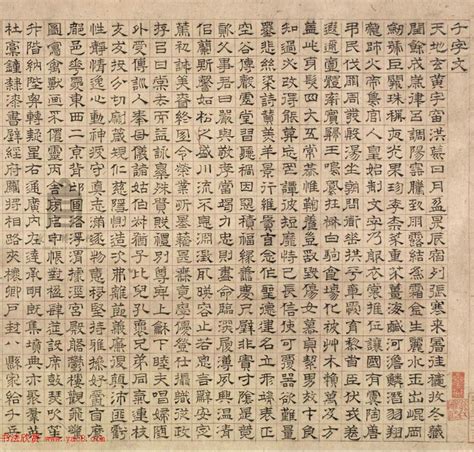 千字文
天地玄黃宇宙洪荒日月盈昃辰宿列張寒來暑往秋收冬藏
閏餘成歲律呂調陽雲騰致雨露結為霜金生麗水玉出崑岡
劍號巨闕珠稱夜光果珍李柰菜重芥薑海鹹河淡鱗潛羽翔
龍師火帝鳥官人皇始制文字乃服衣裳推位讓國有虞陶唐
弔民伐罪周發殷湯坐朝問道垂拱平章愛育黎首臣伏戎羌
遐邇壹體率賓歸王鳴鳳在樹白駒食場化被草木賴及萬方
蓋此身髮四大五常恭惟鞠養豈敢毀傷女慕貞絜男效才良
知過必改得能莫忘罔談彼短靡恃己長信使可覆器欲難量
墨悲絲染詩讚羔羊景行維賢克念作聖德建名立形端表正
空谷傳聲虛堂習聽禍因惡積福緣善慶尺璧非寶寸陰是競
資父事君曰嚴與敬孝當竭力忠則盡命臨深履薄夙興溫清
似蘭斯馨如松之盛川流不息淵澄取映容止若思言辭安定
篤初誠美慎終宜令榮業所基籍甚無竟學優登仕攝職從政
存以甘棠去而益詠樂殊貴賤禮別尊卑上和下睦夫唱婦隨
外受傅訓入奉母儀諸姑伯叔猶子比兒孔懷兄弟同氣連枝
交友投分切磨箴規仁慈隱惻造次弗離節義廉退顛沛匪虧
性靜情逸心動神疲守真志滿逐物意移堅持雅操好爵自縻
都邑華夏東西二京背邙面洛浮渭據涇宮殿盤鬱樓觀飛驚
圖寫禽獸畫彩仙靈丙舍傍啟甲帳對楹肆筵設席鼓瑟吹笙
升階納陛弁轉疑星右通廣內左達承明既集墳典亦聚群英
杜稾鍾隸漆書壁經府羅將相路俠槐卿戶封八縣家給千兵